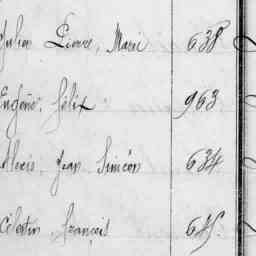 Julien Pierre, Marie 638
Eugène, Félix 963
Alexis, Jean Siméon 634
Célestin, François